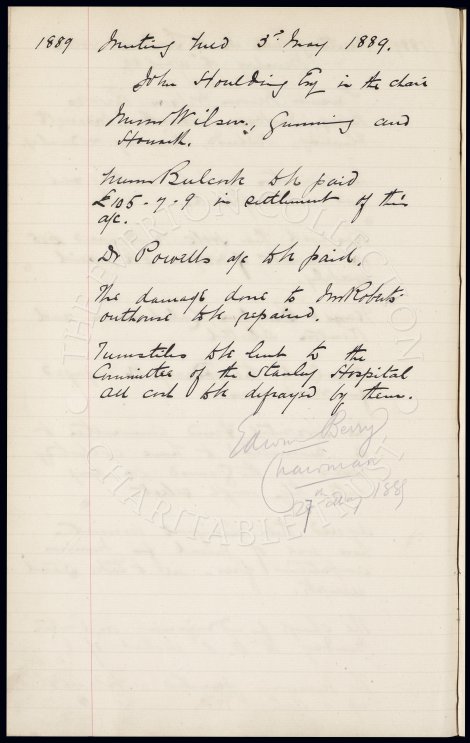 1889 Meeting held 3rd May 1889.
John Houlding Esq in the chair
Messrs Wilson, Gunning and
Howarth.
Messrs Bulcock to be paid
£105-7-9 in settlement of their
a/c.
Dr Powells a/c to be paid.
The damage done to Mrs Roberts'
outhouse to be repaired.
Turnstiles to be lent to the
Committee of the Stanley Hospital
all cost to be defrayed by them.
Edwin Berry
Chairman
27th May 1889
THE EVERTON COLLECTION
CHARITABLE TRUST